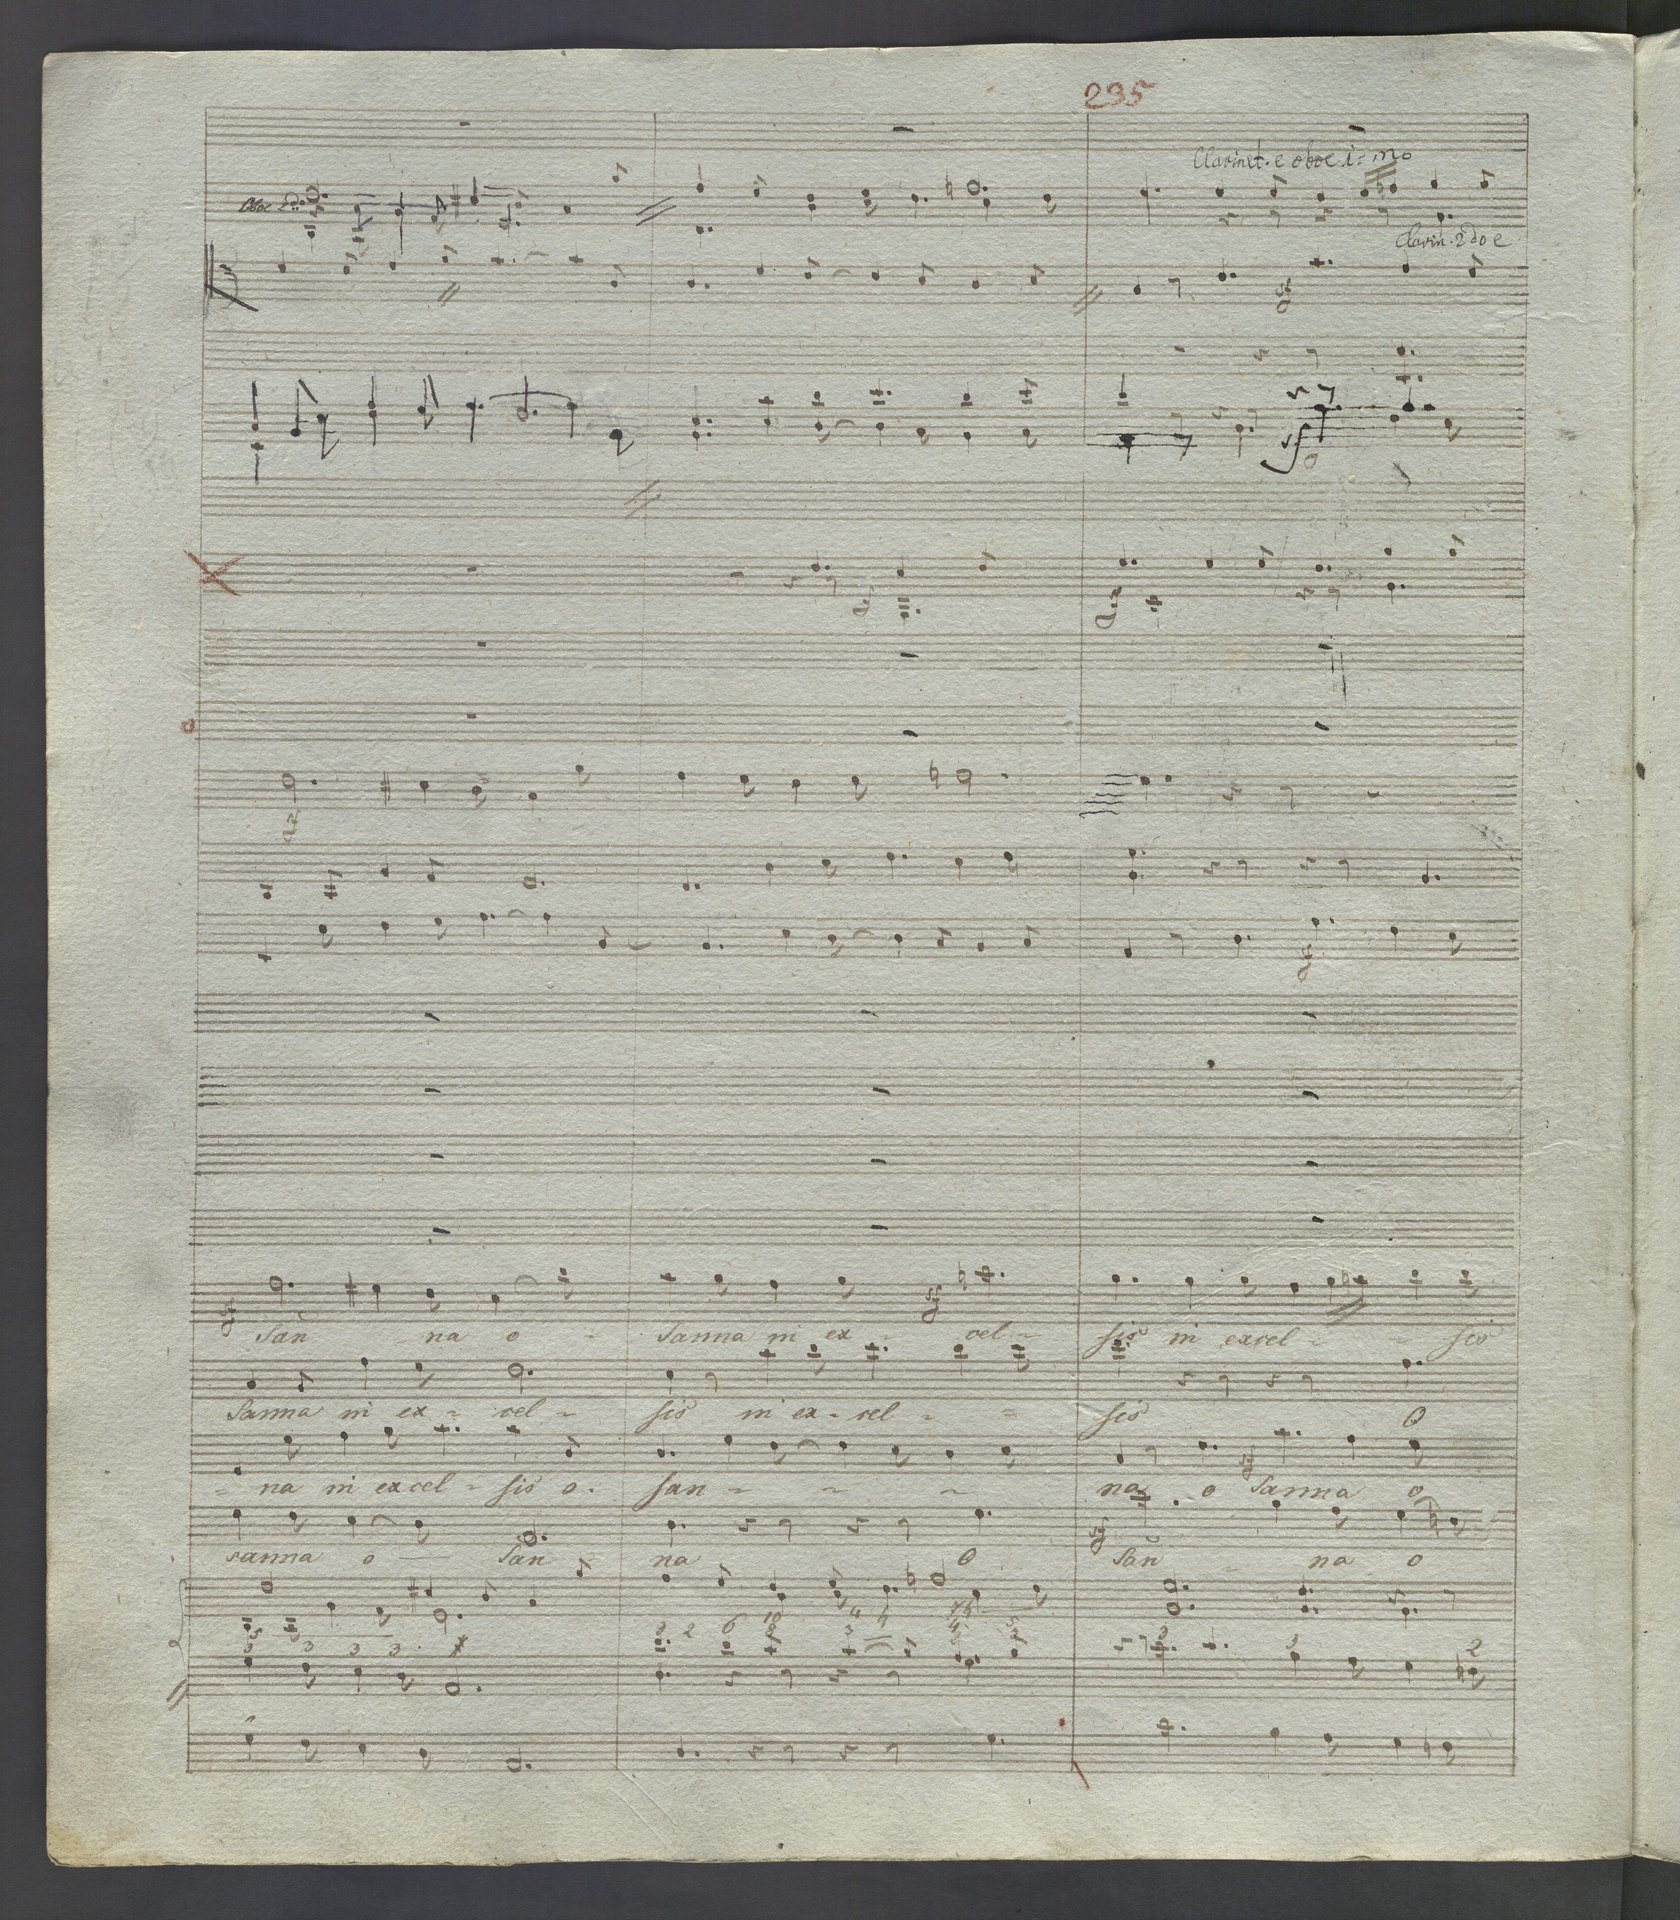 295
Clarinet. e oboe i-mo
Oboe 2do
Clarin. 2do e
sf
sf
sf
sf
sf
sf
sf sf
San na o - Sanna in ex - cel - sis in excel - - sis
Sanna in ex - cel - sis in ex - cel - - sis O
sf
- na in excel - sis o. san - - - na o Sanna o
sf
sanna o San - na O San na o
3 3 3 3 3 2 6 3 4 3 3 2